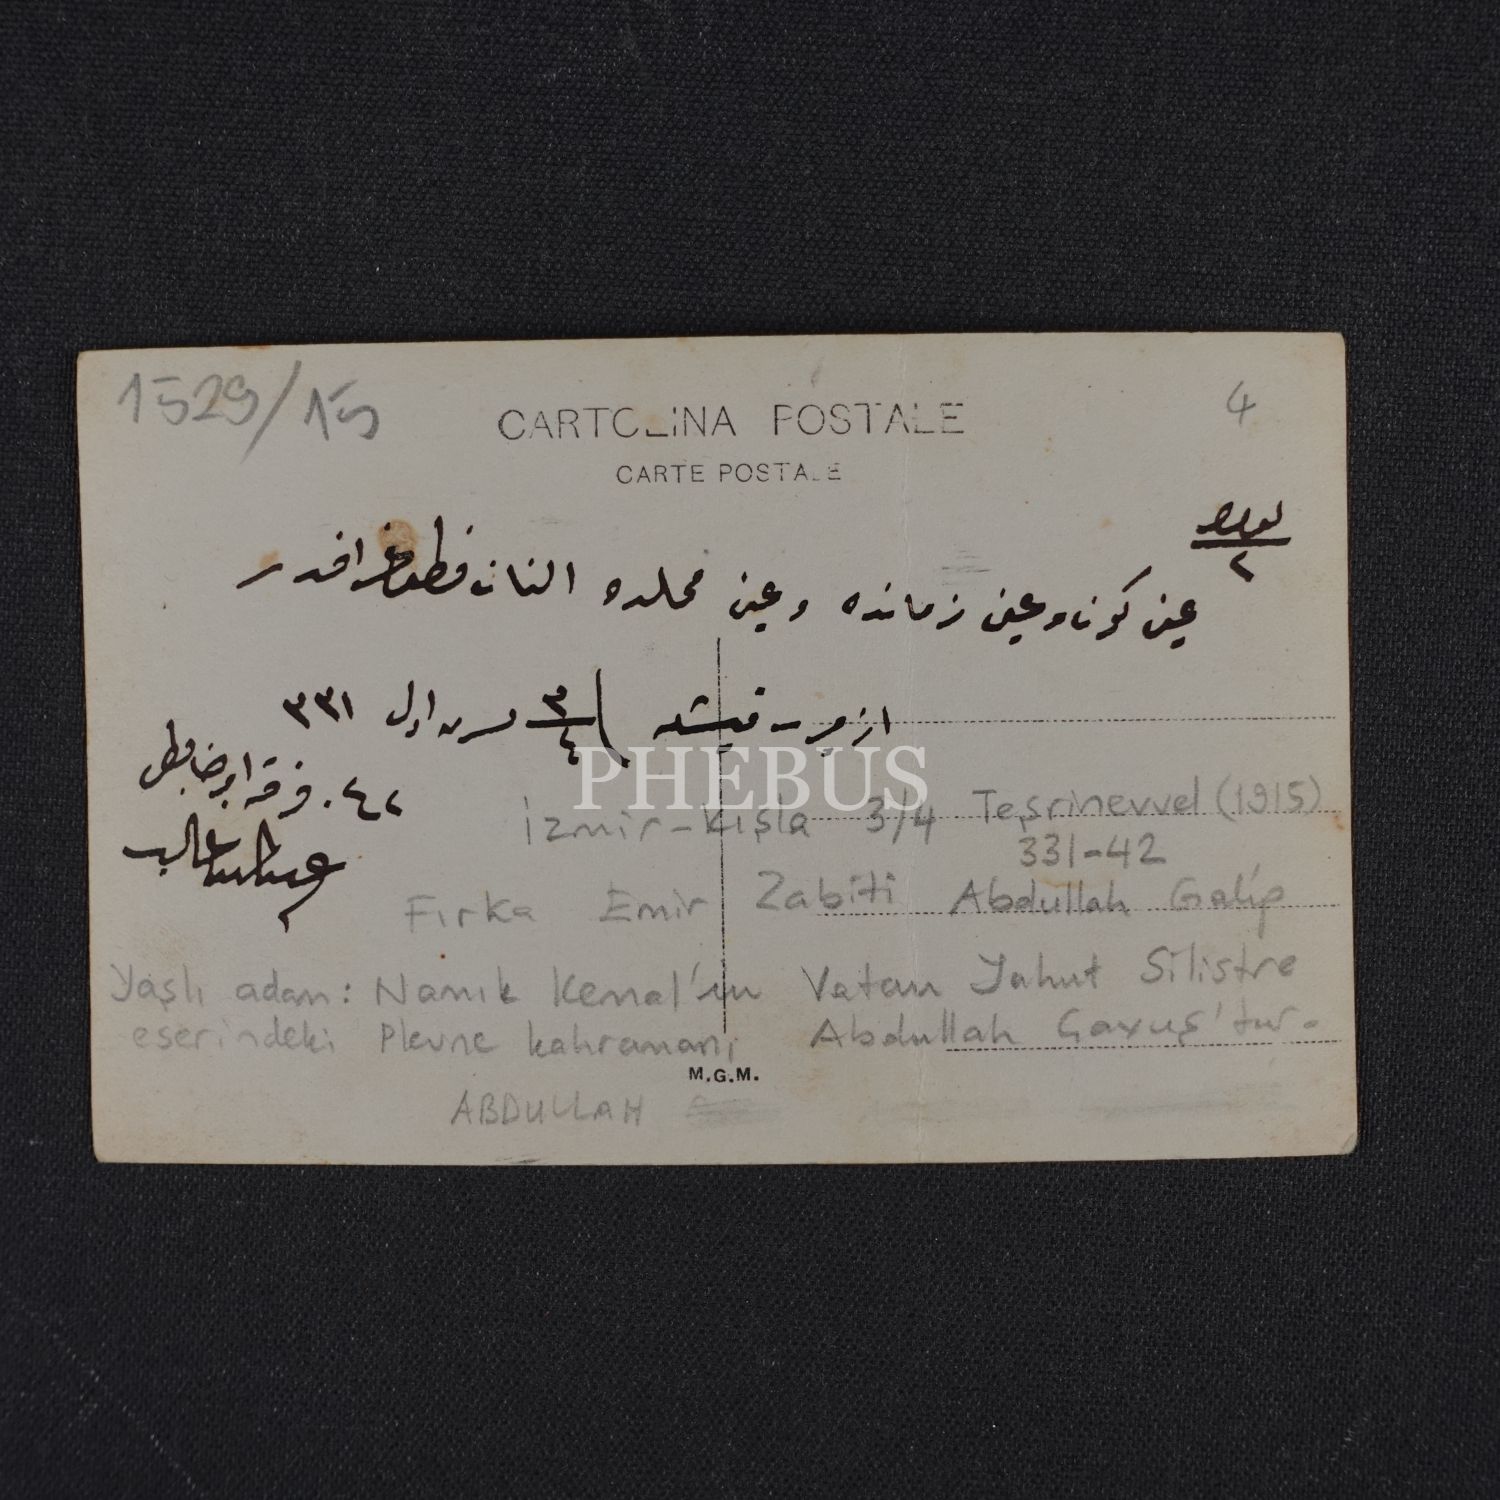 1529/15
4
CARTOLINA POSTALE
CARTE POSTALE
٢
عين كون و عين زمانده و عين محلده النان فطوغرافدر
ازمير - قيشله ٣/٤ تشرين اول ٣٣١
٤٢. فرقه امير ضابطى
عبدالله غالب
PHEBUS
İzmir-Kışla 3/4 Teşrinevvel (1915)
331-42
Fırka Emir Zabiti Abdullah Galip
Yaşlı adam: Namık Kemal'in Vatan Yahut Silistre
eserindeki Plevne kahramanı Abdullah Çavuş'tur.
M.G.M.
ABDULLAH